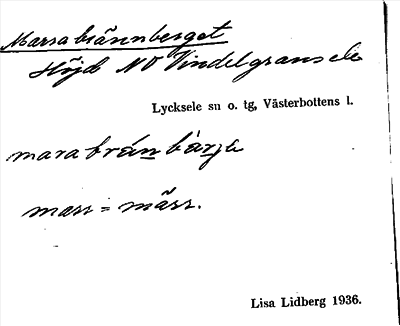 Marsabrännberget
Höjd NO Vindelgransele
Lycksele sn o. tg, Västerbottens l.
marabrán bàrjə
mars = märr.
Lisa Lidberg 1936.